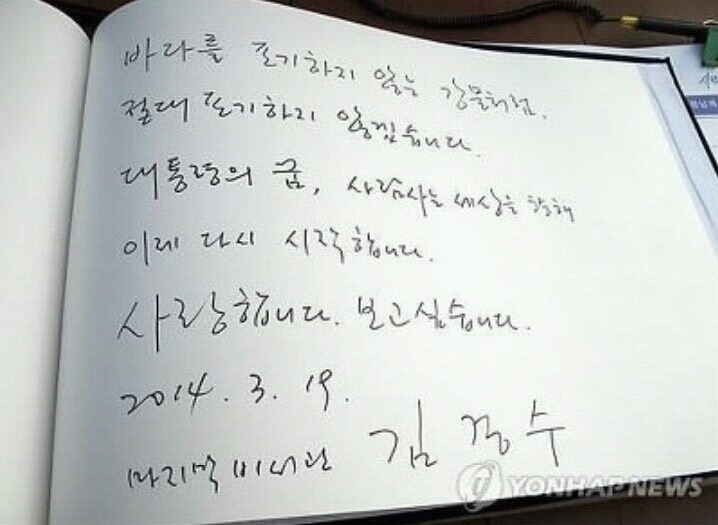 바다를 포기하지 않는 강물처럼.
절대 포기하지 않겠습니다.
대통령의 꿈, 사람사는 세상을 향해
이제 다시 시작합니다.
사랑합니다. 보고싶습니다.
2014. 3. 19.
마지막 비서관 김경수
YONHAPNEWS